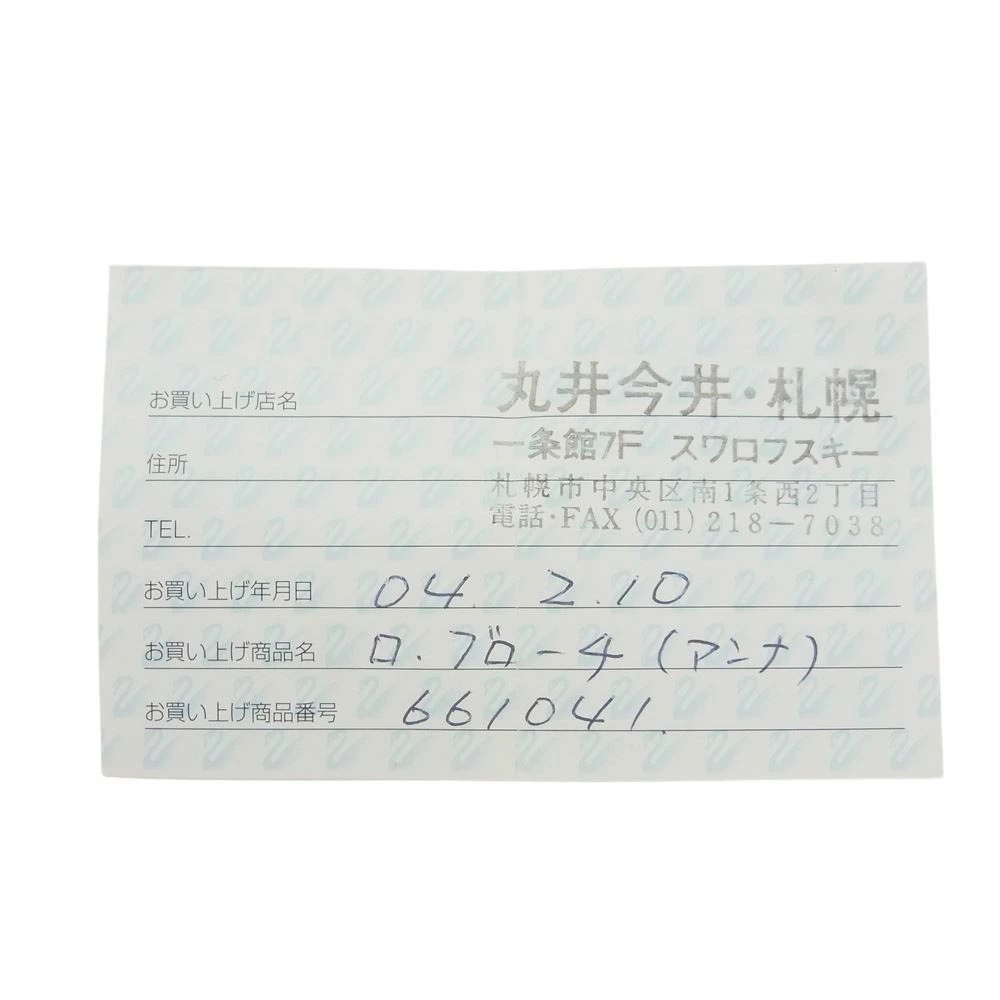 お買い上げ店名 丸井今井・札幌
住所 一条館7F スワロフスキー
札幌市中央区南1条西2丁目
TEL. 電話・FAX (011) 218-7038
お買い上げ年月日 04. 2.10
お買い上げ商品名 ロ.ブローチ(アンナ)
お買い上げ商品番号 661041.